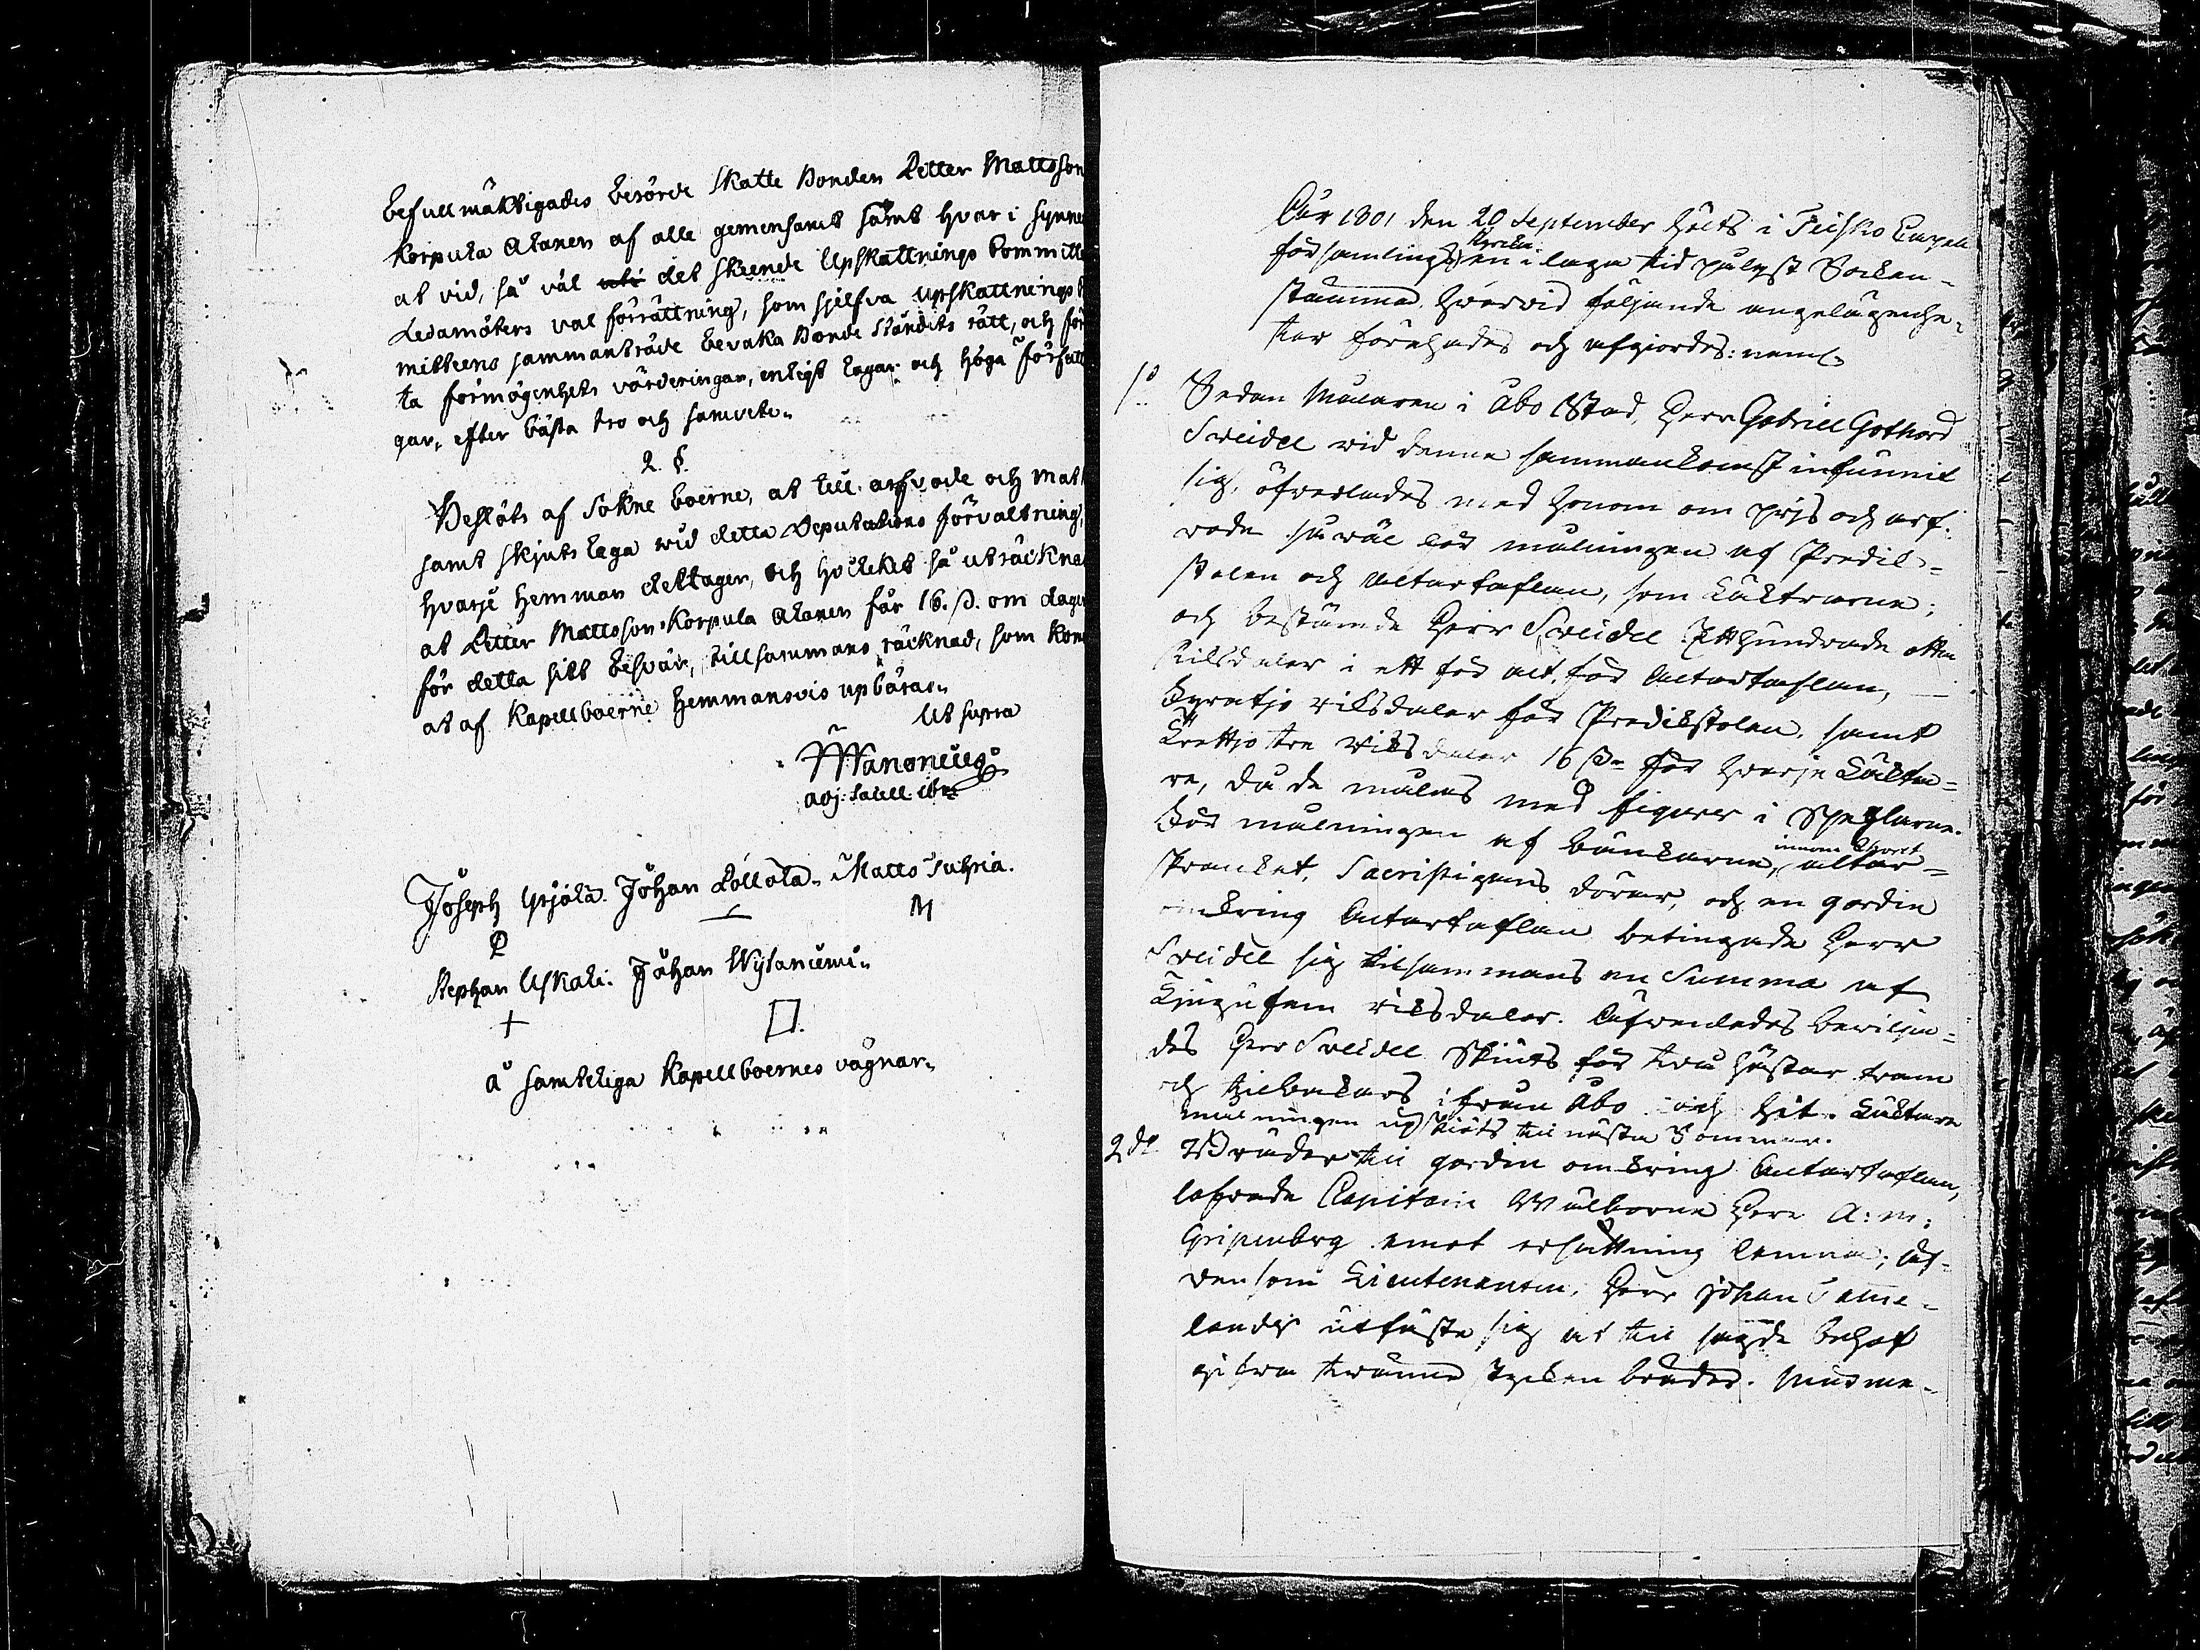 befullmäktigades berörde Skatte Bonden Petter Mattsson
Korpula Alanen af alle gemensamt samt hvar i synne
at vid, så väl det skeende Upskattnings Committe
Ledamöters val förrättning, som sjelfva upskattnings
mitteens sammanträde bevaka Bonde Ståndets rätt, och för
ta förmögenhets värderingar, enligt lagar och höga Författ
gar, efter bästa tro och samvete.
2. §.
Beslöts af Sokne boerne, at till arfvode och mat
samt skjuts lega wid detta Deputations förvaltning,
hvarje Hemman deltager, och hvilket så uträckna
at Petter Mattsson Korpula Alanen får 16. ß. om dagen
för detta sitt besvär, tillsammans räcknad, som kom
at af Kapellboerne Hemmansvis upbäras.
Ut supra
Wanonius
adj: Sacell. ibm
Joseph Yrjölä. Johan Pollola. Matts Suhria.
M
Stephan Uskali. Johan Wylaniemi.
å samteliga Kapellboernes vägnar.
Åhr 1801 den 20 September hölts i Teisko Capell
församlings kyrka en i laga tid pulyst Socken-
stämma hvarvid följande angelägenhe-
ter förehades och afgjordes: neml.
1o Sedan Målaren i Åbo Stad, Herr Gabriel Gothard
Sveidel vid denna sammankomst infunnit
sig, öfverlades med honom om pris och arf-
vode så väl för målningen af Predik-
stolen och Altartaflan, som Läktrarne;
och bestämde Herr Sveidel Etthundrade otta
Riksdaler i ett för alt, för Altartaflan,
Fyratjo riksdaler för Predikstolen, samt
Trettjo tre Riksdaler 16 ß. för hvarje Läkta-
re, då de målas med figurer i Speglarne.
För målningen af bänkarne, innom Choret altar-
skranket, Sacristigans dörar, och en gardin
omkring Altartaflan betingade Herr
Sveidel sig tilsammans en Summa af
Tjugufem riksdaler. Äfvenledes bevilja-
des Herr Sveidel Skjuts för två hästar fram
och tilbakars ifrån Åbo och hit. Läktare
målningen upskjöts til nästa Sommar.
2do Bräder til gardin omkring Altartaflan,
lofvade Capitain Wälborne Herr A: M:
Gripenberg emot ersättning lemna; äf-
ven som Lieutenanten, Herr Johan Tame-
lander utfäste sig at til sagde behof
gifva tvänne tycken bräder. Murme-